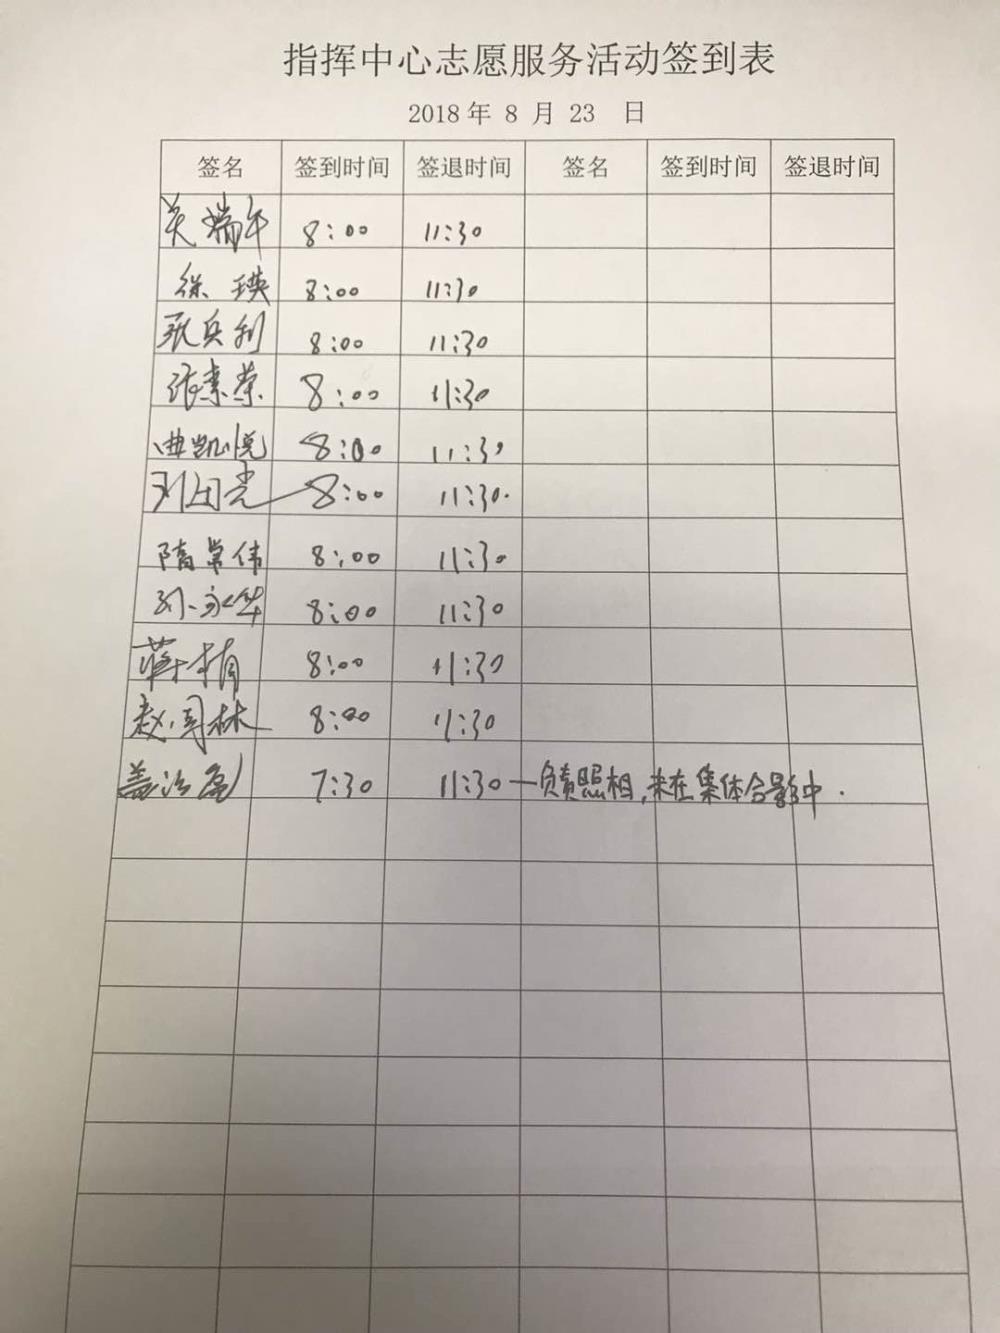 指挥中心志愿服务活动签到表
2018年 8 月 23 日
签名 签到时间 签退时间 签名 签到时间 签退时间
关瑞午 8:00 11:30
徐瑛 8:00 11:30
张兵利 8:00 11:30
张素荣 8:00 11:30
曲凯悦 8:00 11:30
刘国光 8:00 11:30.
隋常伟 8:00 11:30
孙永华 8:00 11:30
蒋楠 8:00 11:30
赵国林 8:00 11:30
7:30 11:30—负责照相,未在集体合影中.